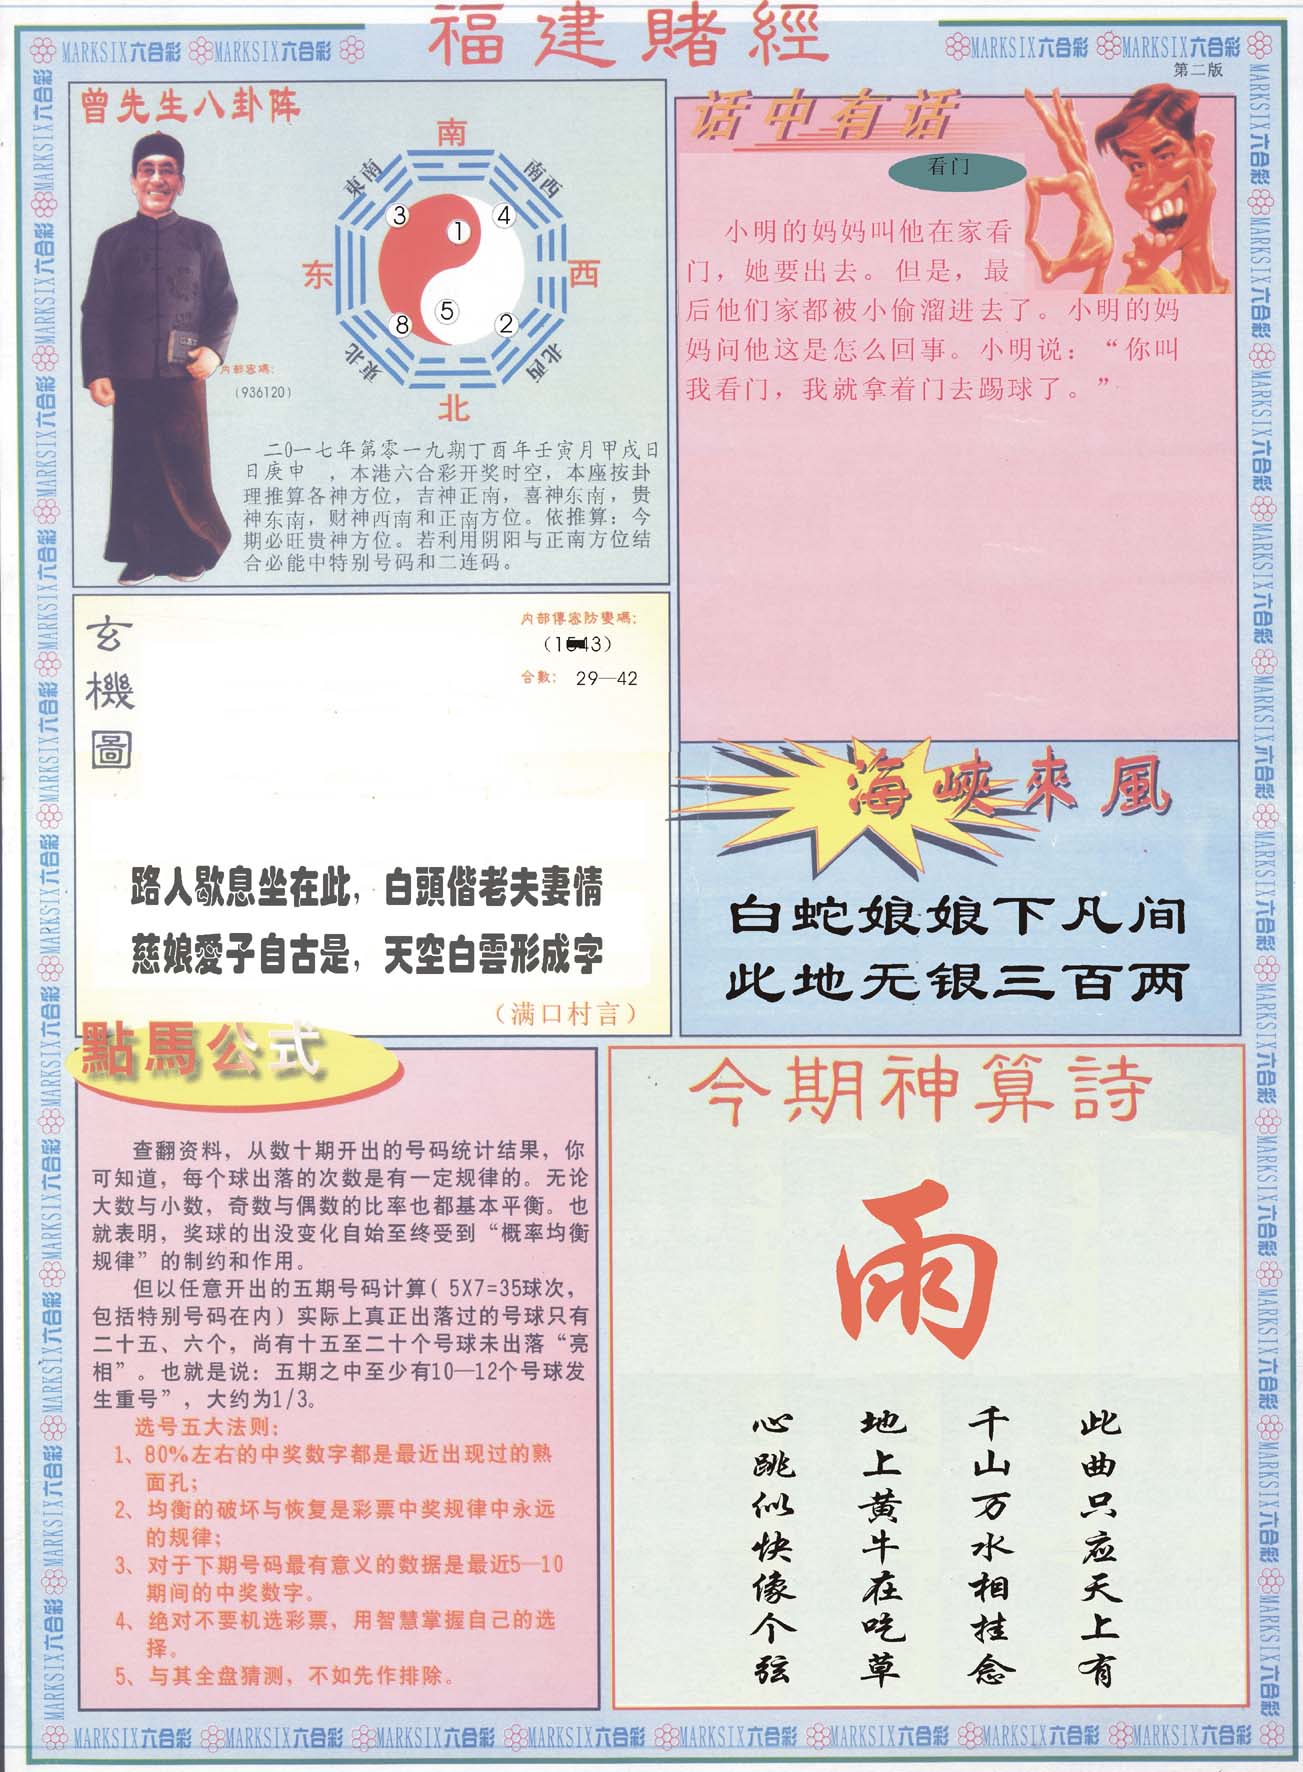 福建賭經
MARKSIX六合彩 MARKSIX六合彩
MARKSIX六合彩 MARKSIX六合彩
第二版
曾先生八卦阵
南
東南
南西
3
1
4
东
西
5
8
2
東北
北西
北
内部密碼：
（936120）
二0一七年第零一九期丁酉年壬寅月甲戌日
日庚申 ，本港六合彩开奖时空，本座按卦
理推算各神方位，吉神正南，喜神东南，贵
神东南，财神西南和正南方位。依推算：今
期必旺贵神方位。若利用阴阳与正南方位结
合必能中特别号码和二连码。
话中有话
看门
小明的妈妈叫他在家看
门，她要出去。但是，最
后他们家都被小偷溜进去了。小明的妈
妈问他这是怎么回事。小明说：“你叫
我看门，我就拿着门去踢球了。”
玄機圖
内部傳密防變碼：
合數： 29—42
路人歇息坐在此，白頭偕老夫妻情
慈娘愛子自古是，天空白雲形成字
（满口村言）
海峽來風
白蛇娘娘下凡间
此地无银三百两
點馬公式
查翻资料，从数十期开出的号码统计结果，你
可知道，每个球出落的次数是有一定规律的。无论
大数与小数，奇数与偶数的比率也都基本平衡。也
就表明，奖球的出没变化自始至终受到“概率均衡
规律”的制约和作用。
但以任意开出的五期号码计算（5X7=35球次，
包括特别号码在内）实际上真正出落过的号球只有
二十五、六个，尚有十五至二十个号球未出落“亮
相”。也就是说：五期之中至少有10—12个号球发
生重号”，大约为1/3。
选号五大法则：
1、80%左右的中奖数字都是最近出现过的熟
面孔；
2、均衡的破坏与恢复是彩票中奖规律中永远
的规律；
3、对于下期号码最有意义的数据是最近5—10
期间的中奖数字。
4、绝对不要机选彩票，用智慧掌握自己的选
择。
5、与其全盘猜测，不如先作排除。
今期神算詩
雨
此曲只应天上有
千山万水相挂念
地上黄牛在吃草
心跳似快像个弦
MARKSIX六合彩 MARKSIX六合彩 MARKSIX六合彩 MARKSIX六合彩 MARKSIX六合彩 MARKSIX六合彩 MARKSIX六合彩 MARKSIX六合彩